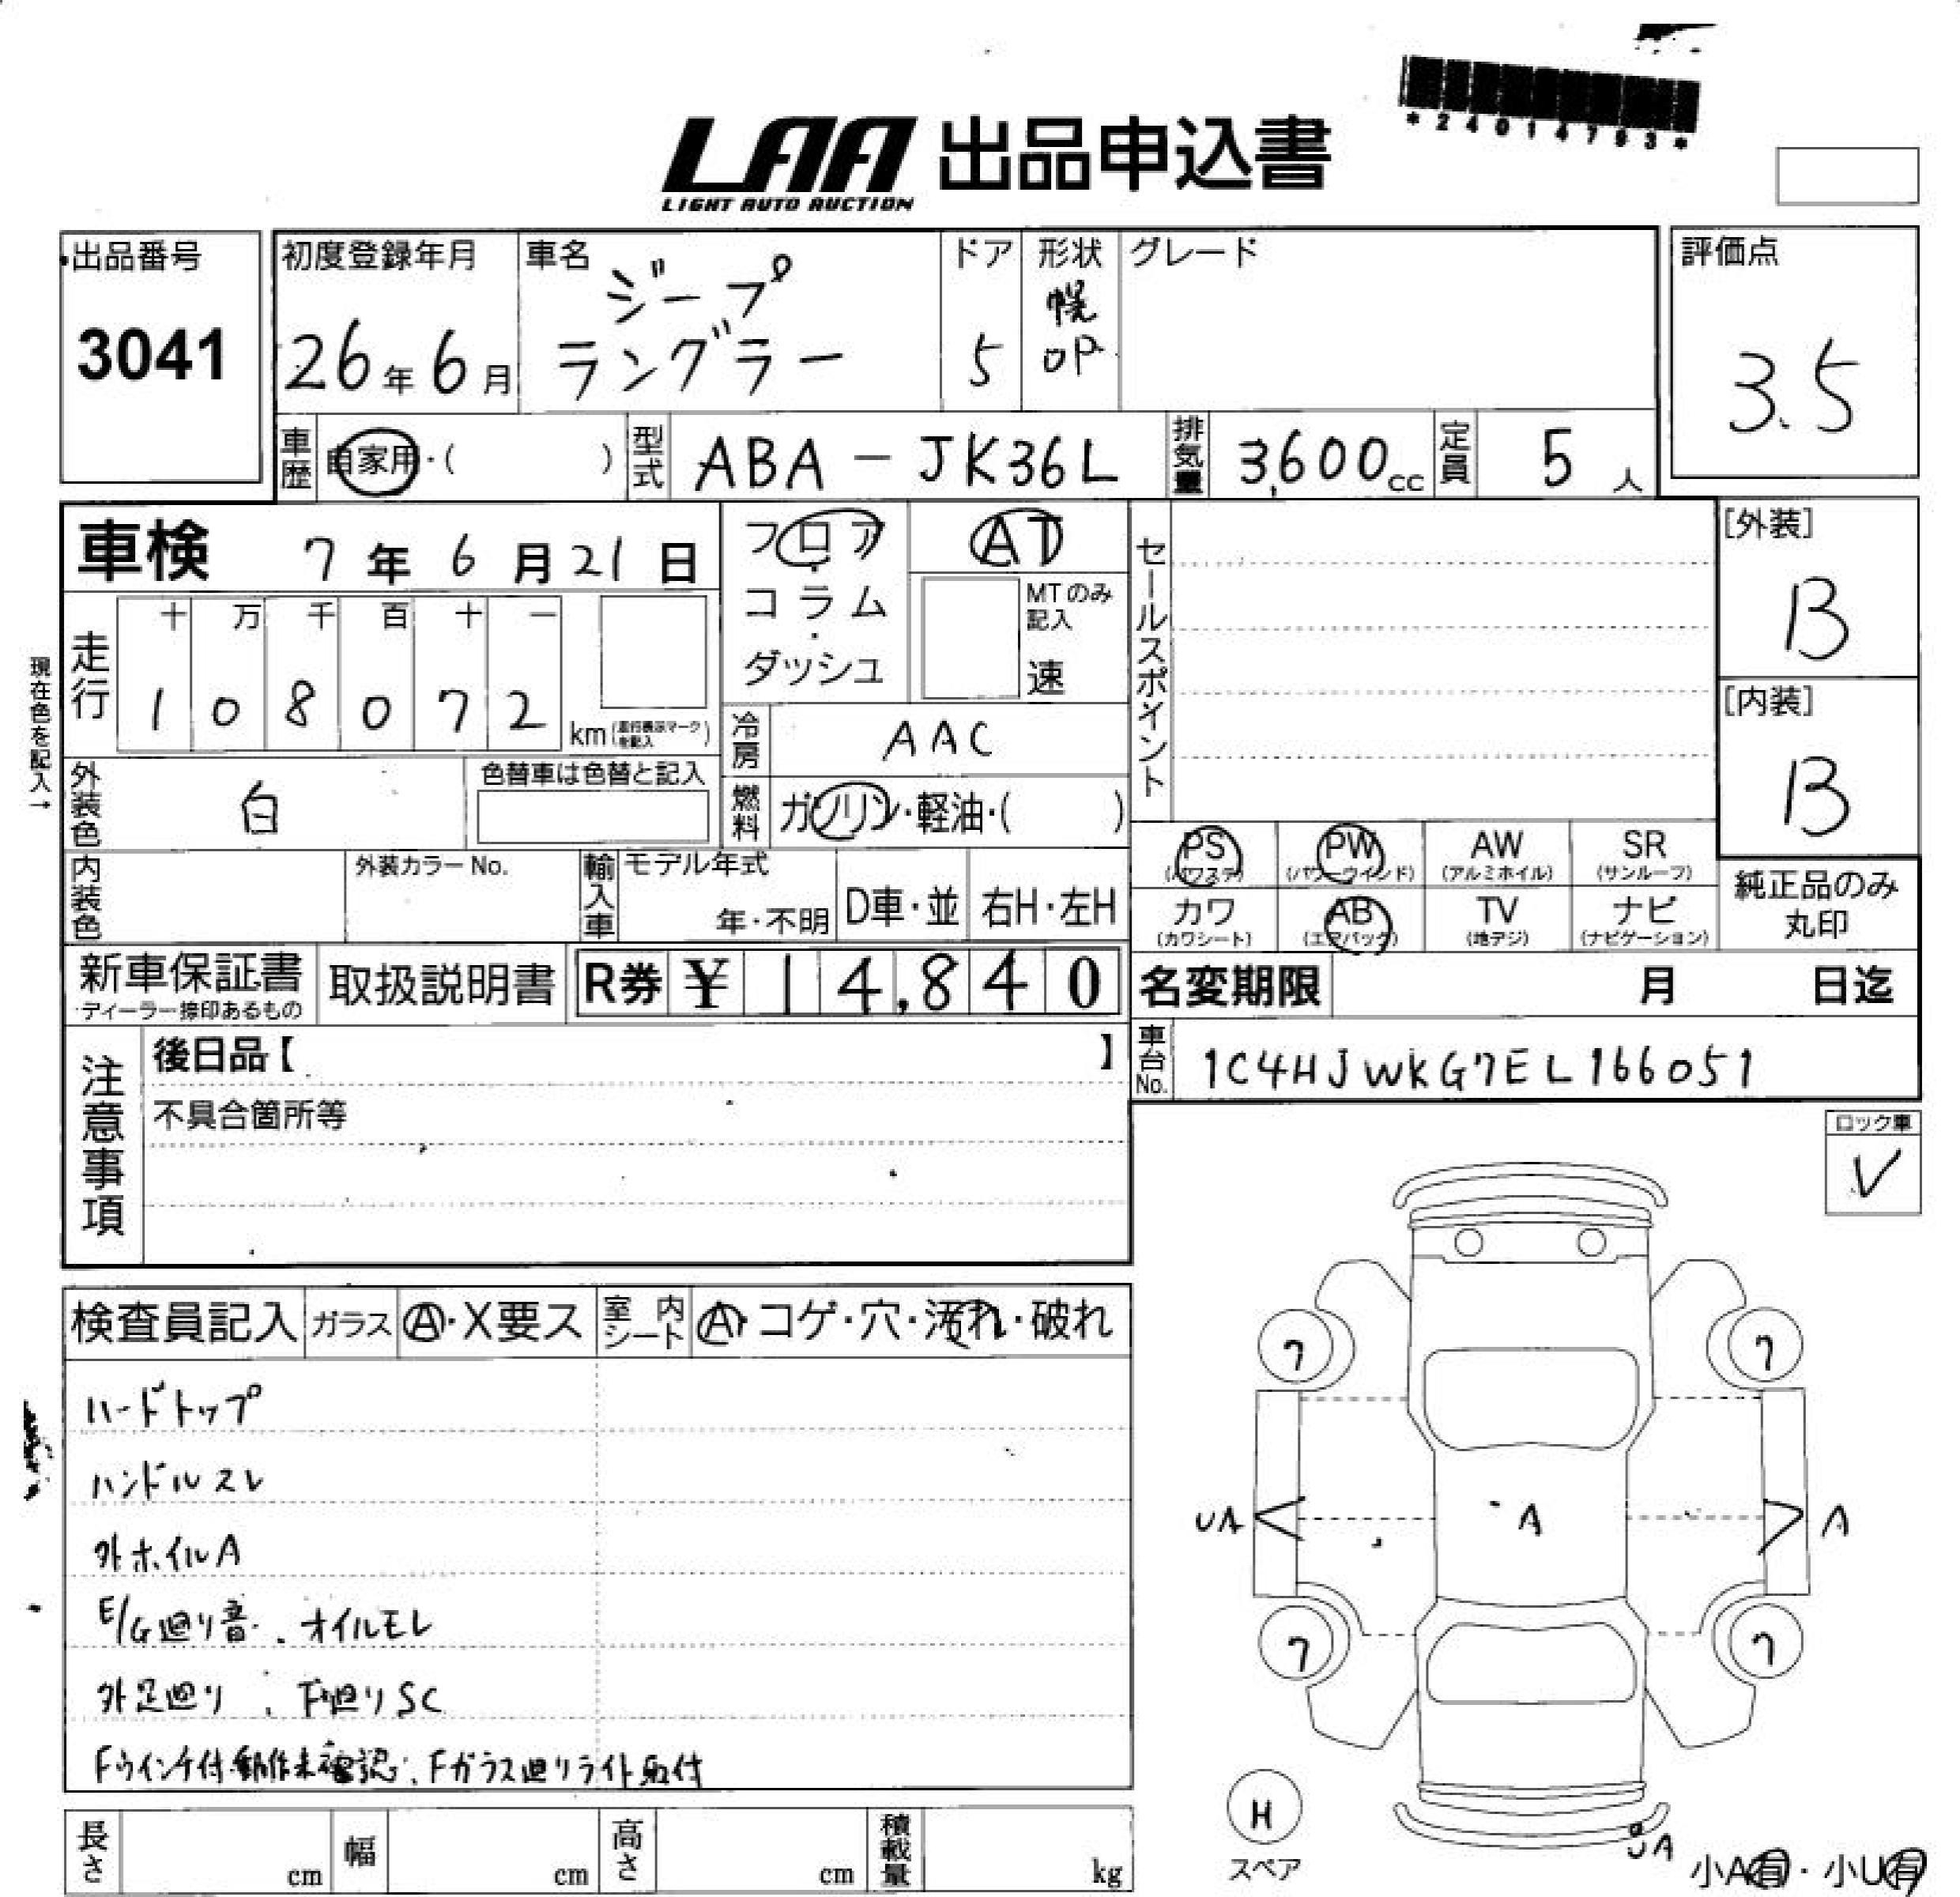 *24014793*
LAA 出品申込書
LIGHT AUTO AUCTION
出品番号
3041
初度登録年月
26年6月
車名
ジープ
ラングラー
ドア
5
形状
幌
OP
グレード
評価点
3.5
車歴 自家用・( )
型式 ABA-JK36L
排気量 3,600cc
定員 5人
車検 7年6月21日
フロア・コラム・ダッシュ
AT
MTのみ記入
速
セールスポイント
[外装]
B
[内装]
B
現在色を記入→
走行
十 万 千 百 十 一
1 0 8 0 7 2
km(走行表示マークを記入)
冷房 AAC
外装色 白
色替車は色替と記入
燃料 ガソリン・軽油・( )
PS (パワステ)
PW (パワーウインド)
AW (アルミホイル)
SR (サンルーフ)
カワ (カワシート)
AB (エアバック)
TV (地デジ)
ナビ (ナビゲーション)
純正品のみ
丸印
内装色
外装カラーNo.
輸入車
モデル年式
年・不明
D車・並
右H・左H
新車保証書
ディーラー捺印あるもの
取扱説明書
R券 ¥14,840
名変期限 月 日迄
車台No. 1C4HJWKG7EL166051
注意事項
後日品【 】
不具合箇所等
ロック車
V
検査員記入
ガラス A・X要ス
室内シート A・コゲ・穴・汚れ・破れ
ハードトップ
ハンドルスレ
外ホイルA
E/G廻り音. オイルモレ
外足廻り. 下廻りSC
Fウインチ付動作未確認. Fガラス廻りライト取付
7
7
UA
A
A
7
7
H
スペア
UA
小A有・小U有
長さ cm
幅 cm
高さ cm
積載量 kg